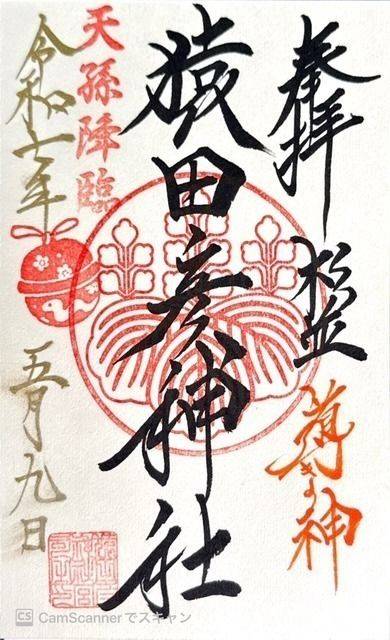 奉拝
杉並
導きの神
猿田彦神社
天孫降臨
令和七年
五月九日
CS CamScannerでスキャン